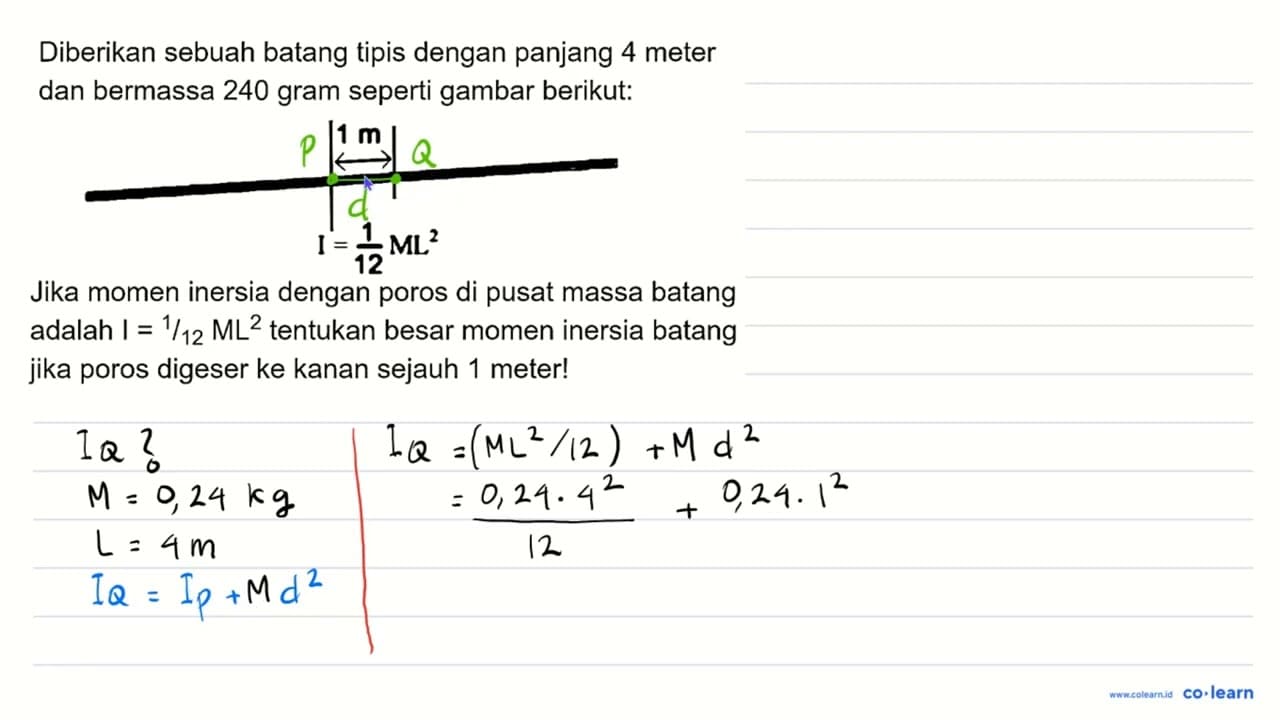 Diberikan sebuah batang tipis dengan panjang 4 meter
dan bermassa 240 gram seperti gambar berikut:
P 1 m Q
d
I = 1/12 ML²
Jika momen inersia dengan poros di pusat massa batang
adalah I = ¹/₁₂ ML² tentukan besar momen inersia batang
jika poros digeser ke kanan sejauh 1 meter!
IQ ?
M = 0,24 kg
L = 4 m
IQ = Ip + Md²
IQ = (ML²/12) + Md²
= 0,24 . 4² / 12 + 0,24 . 1²
www.colearn.id co·learn